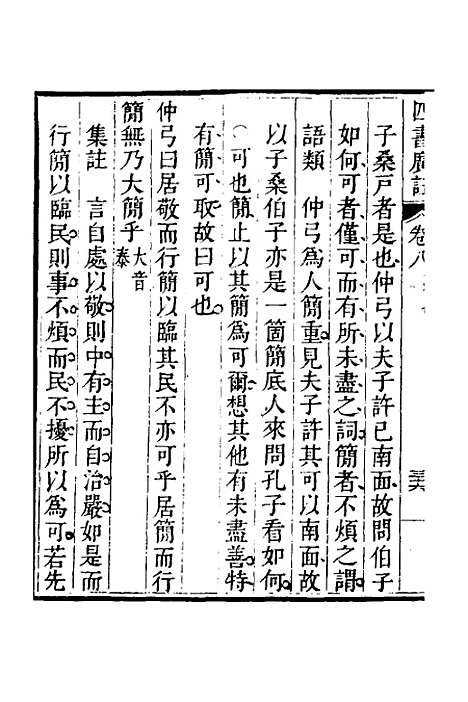 四書
卷八
子桑戸者是也仲弓以夫子許已南面故問伯子
如何可者僅可而有所未盡之詞簡者不煩之謂
語類　仲弓爲人簡重見夫子許其可以南面故
以子桑伯子亦是一箇簡底人來問孔子看如何
○可也簡止以其簡爲可爾想其他有未盡善特
有簡可取故曰可也
仲弓曰居敬而行簡以臨其民不亦可乎居簡而行
簡無乃大簡乎大音泰
集註　言自處以敬則中有主而自治嚴如是而
行簡以臨民則事不煩而民不擾所以爲可若先